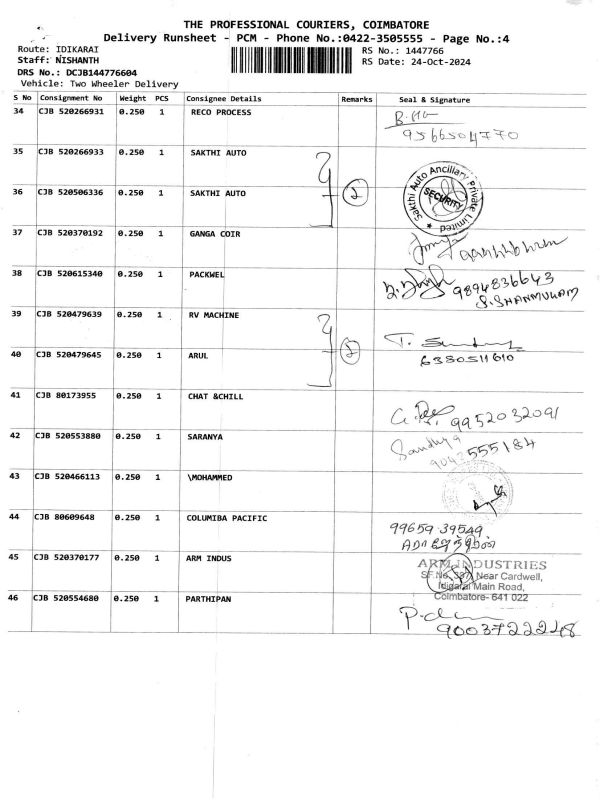 THE PROFESSIONAL COURIERS, COIMBATORE
Delivery Runsheet - PCM - Phone No.:0422-3505555 - Page No.:4
Route: IDIKARAI
RS No.: 1447766
Staff: NISHANTH
RS Date: 24-Oct-2024
DRS No.: DCJB144776604
Vehicle: Two Wheeler Delivery
S No Consignment No Weight PCS Consignee Details Remarks Seal & Signature
34 CJB 520266931 0.250 1 RECO PROCESS
9566504770
35 CJB 520266933 0.250 1 SAKTHI AUTO
36 CJB 520506336 0.250 1 SAKTHI AUTO 2
Sakthi Auto Ancillary Private Limited
SECURITY
37 CJB 520370192 0.250 1 GANGA COIR
38 CJB 520615340 0.250 1 PACKWEL
9894836643
S.SHANMUGAM
39 CJB 520479639 0.250 1 RV MACHINE
40 CJB 520479645 0.250 1 ARUL 2
6380511610
41 CJB 80173955 0.250 1 CHAT &CHILL
9952032091
42 CJB 520553880 0.250 1 SARANYA
Sandhya
555184
43 CJB 520466113 0.250 1 \MOHAMMED
44 CJB 80609648 0.250 1 COLUMIBA PACIFIC
99659 39549
45 CJB 520370177 0.250 1 ARM INDUS
ARM INDUSTRIES
Near Cardwell,
Idigarai Main Road,
Coimbatore- 641 022
46 CJB 520554680 0.250 1 PARTHIPAN
9003722248